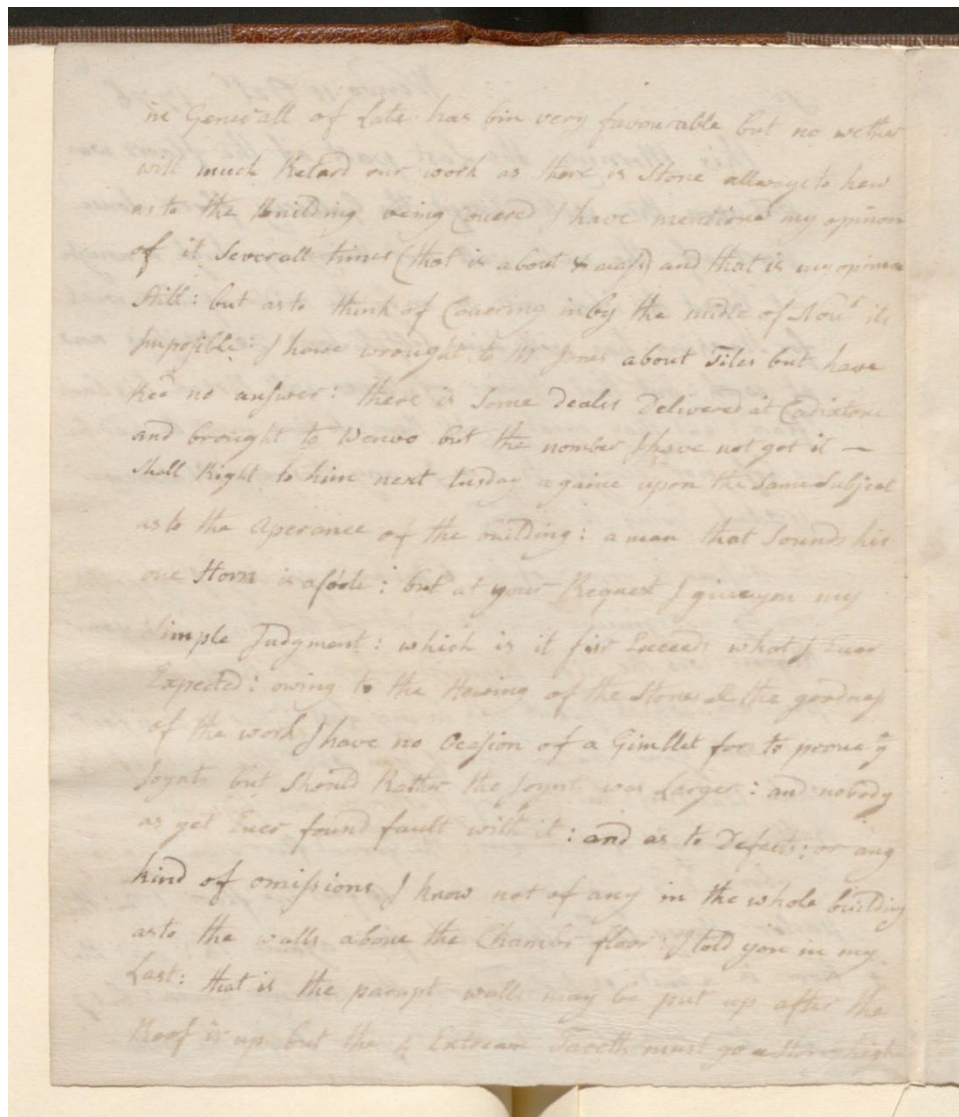 in Generall of Late has bin very favourable but no wether
will much Retard our work as there is Stone allways to hew
as to the Building being Couered I have mentioned my opinion
of it Severall times (that is about and that is my opinion
Still: but as to think of Couering in by the midle of Nour its
Imposible: I have wrought to Mr Jones about Tiles but have
no answer: there is Some Deales Delivered at
and brought to Wenvo but the nomber I have not got it —
Shall Right to him next tusday againe upon the Same Subject
as to the Aperance of the building: a man that Sounds his
one Horn is afoole: but at your Request I give you my
Simple Judgment: which is it farr Exceeds what I Ever
Expected: owing to the Hewing of the Stones & the goodness
of the work I have no Ocasion of a Gimblet for to proue ye
Joynts but Should Rather the Joynt was Larger: and nobody
as yet Ever found fault with it: and as to Defects: or any
kind of omissions I know not of any in the whole building
as to the walls above the Chambr floor: I told you in my
Last: that is the parapt walls may be put up after the
Roof is up but the 4 Extream must go a Story